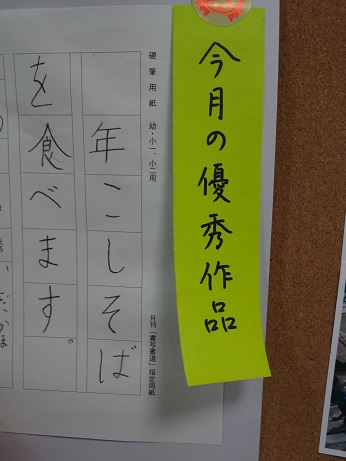 今月の優秀作品
硬筆用紙 幼・小一、小二用
月刊「書写書道」指定用紙
年こしそば
を食べます。